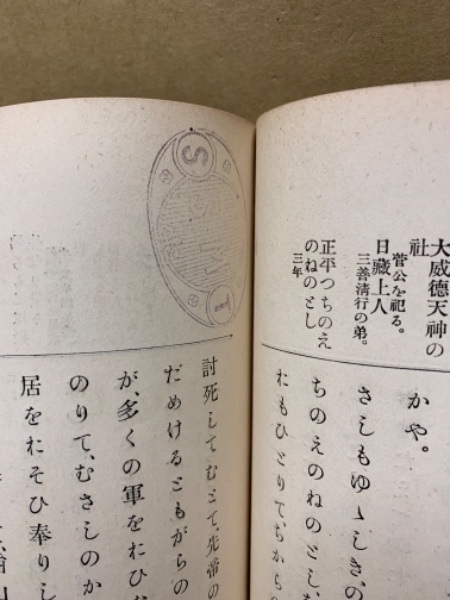 大威德天神の
社
菅公を祀る。
日藏上人
三善淸行の弟。
正平つちのえ
のねのとし
三年
かや。
さしもゆゝしき、の
ちのえのねのとし、
れもひとりて、ちからの
討死してむとて、先帝の
だめけるともがらの
が、多くの軍をれひ
のりて、むさしのか
居をれそひ奉りし